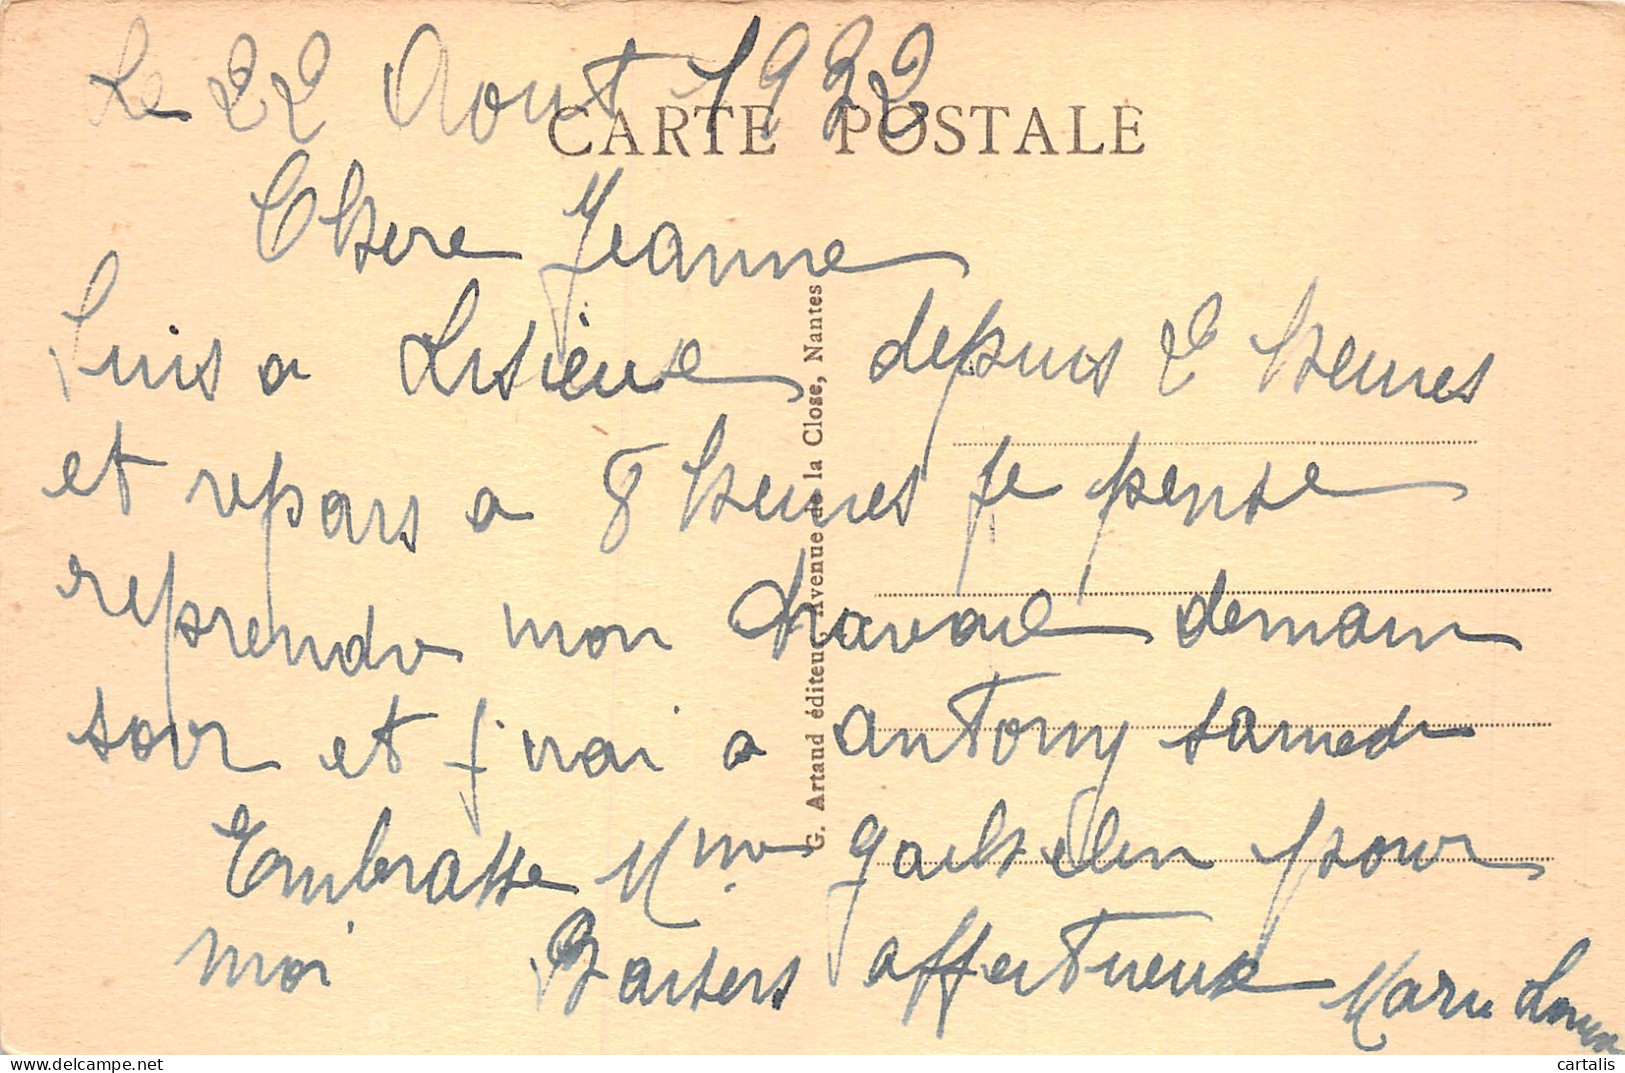 Le 22 Aout 1932
CARTE POSTALE
Chere Jeanne
Suis a Lisieux depuis 2 heures
et repars a 8 heures je pense
reprendre mon travail demain
soir et j'irai a antony samedi
Embrasse Mme pour
moi Baisers affectueux Marie Louise
G. Artaud éditeur, Avenue de la Close, Nantes
cartalis